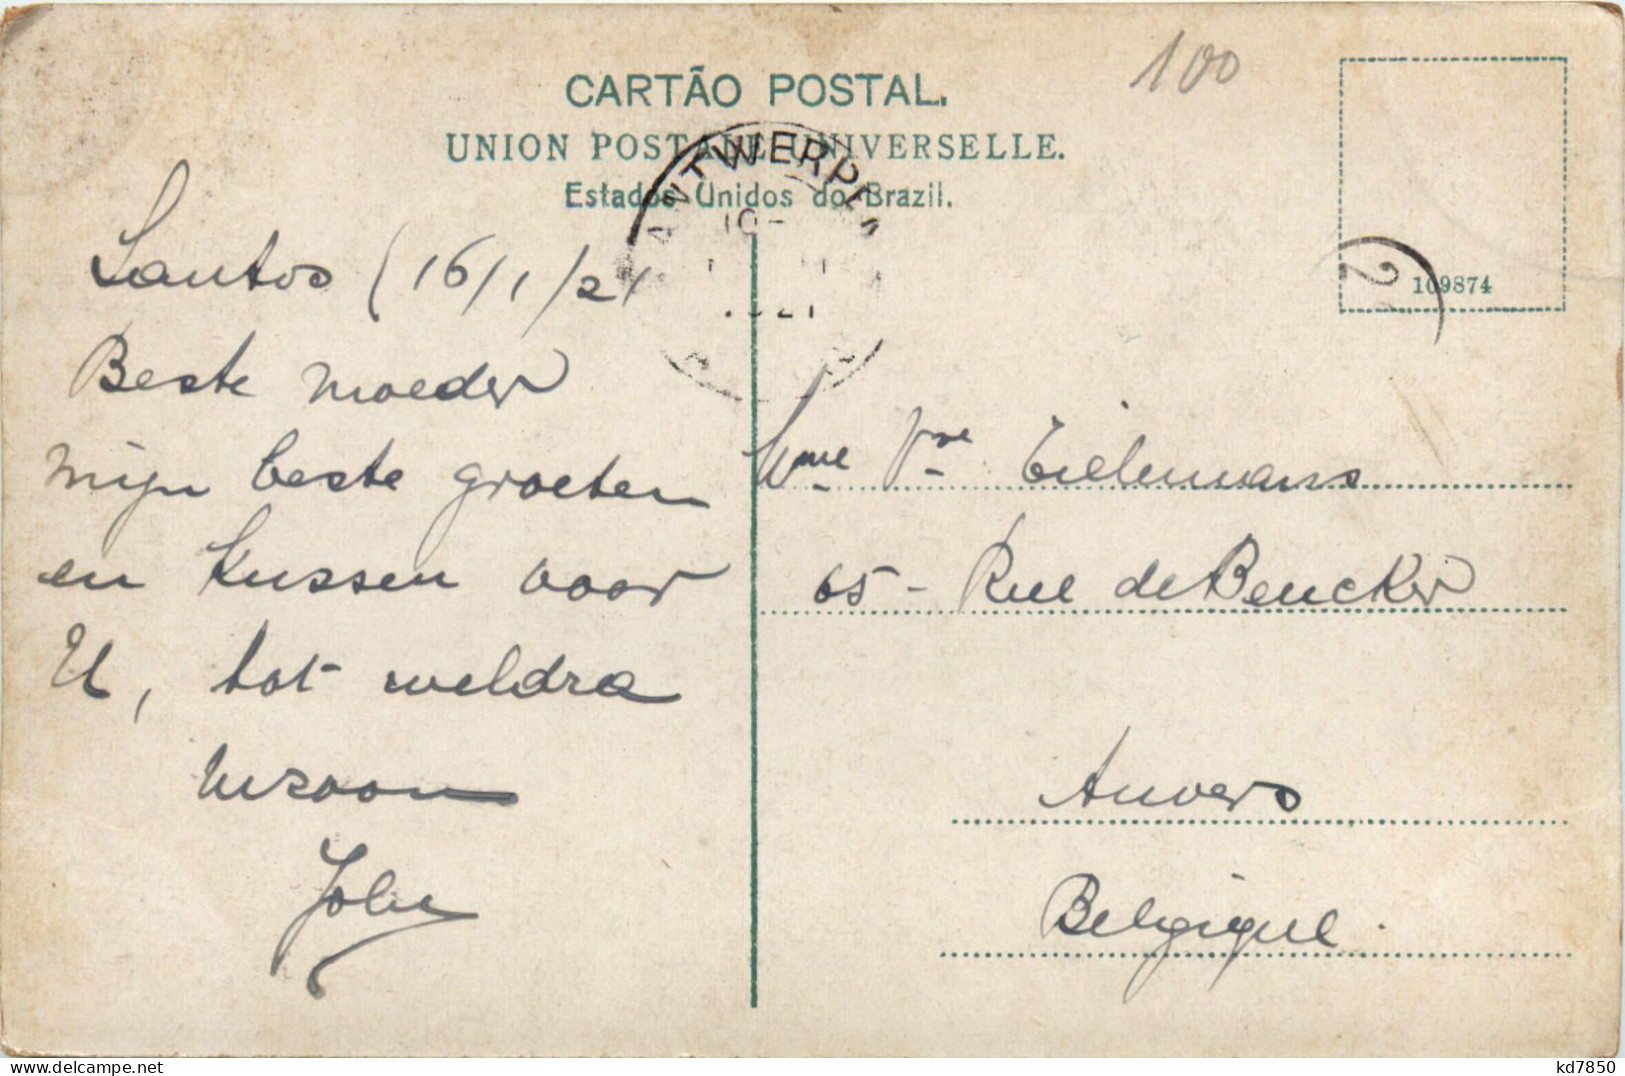 100
CARTÃO POSTAL.
UNION POSTALE UNIVERSELLE.
Estados Unidos do Brazil.
ANTWERPEN
10-
1921
109874
2
Santos (16/1/21
Beste moeder
mijn beste groeten
en kussen voor
U, tot weldra
uw zoon
John
Mme Vve Tielemans
65 - Rue de Beucker
Anvers
Belgique.
kd7850